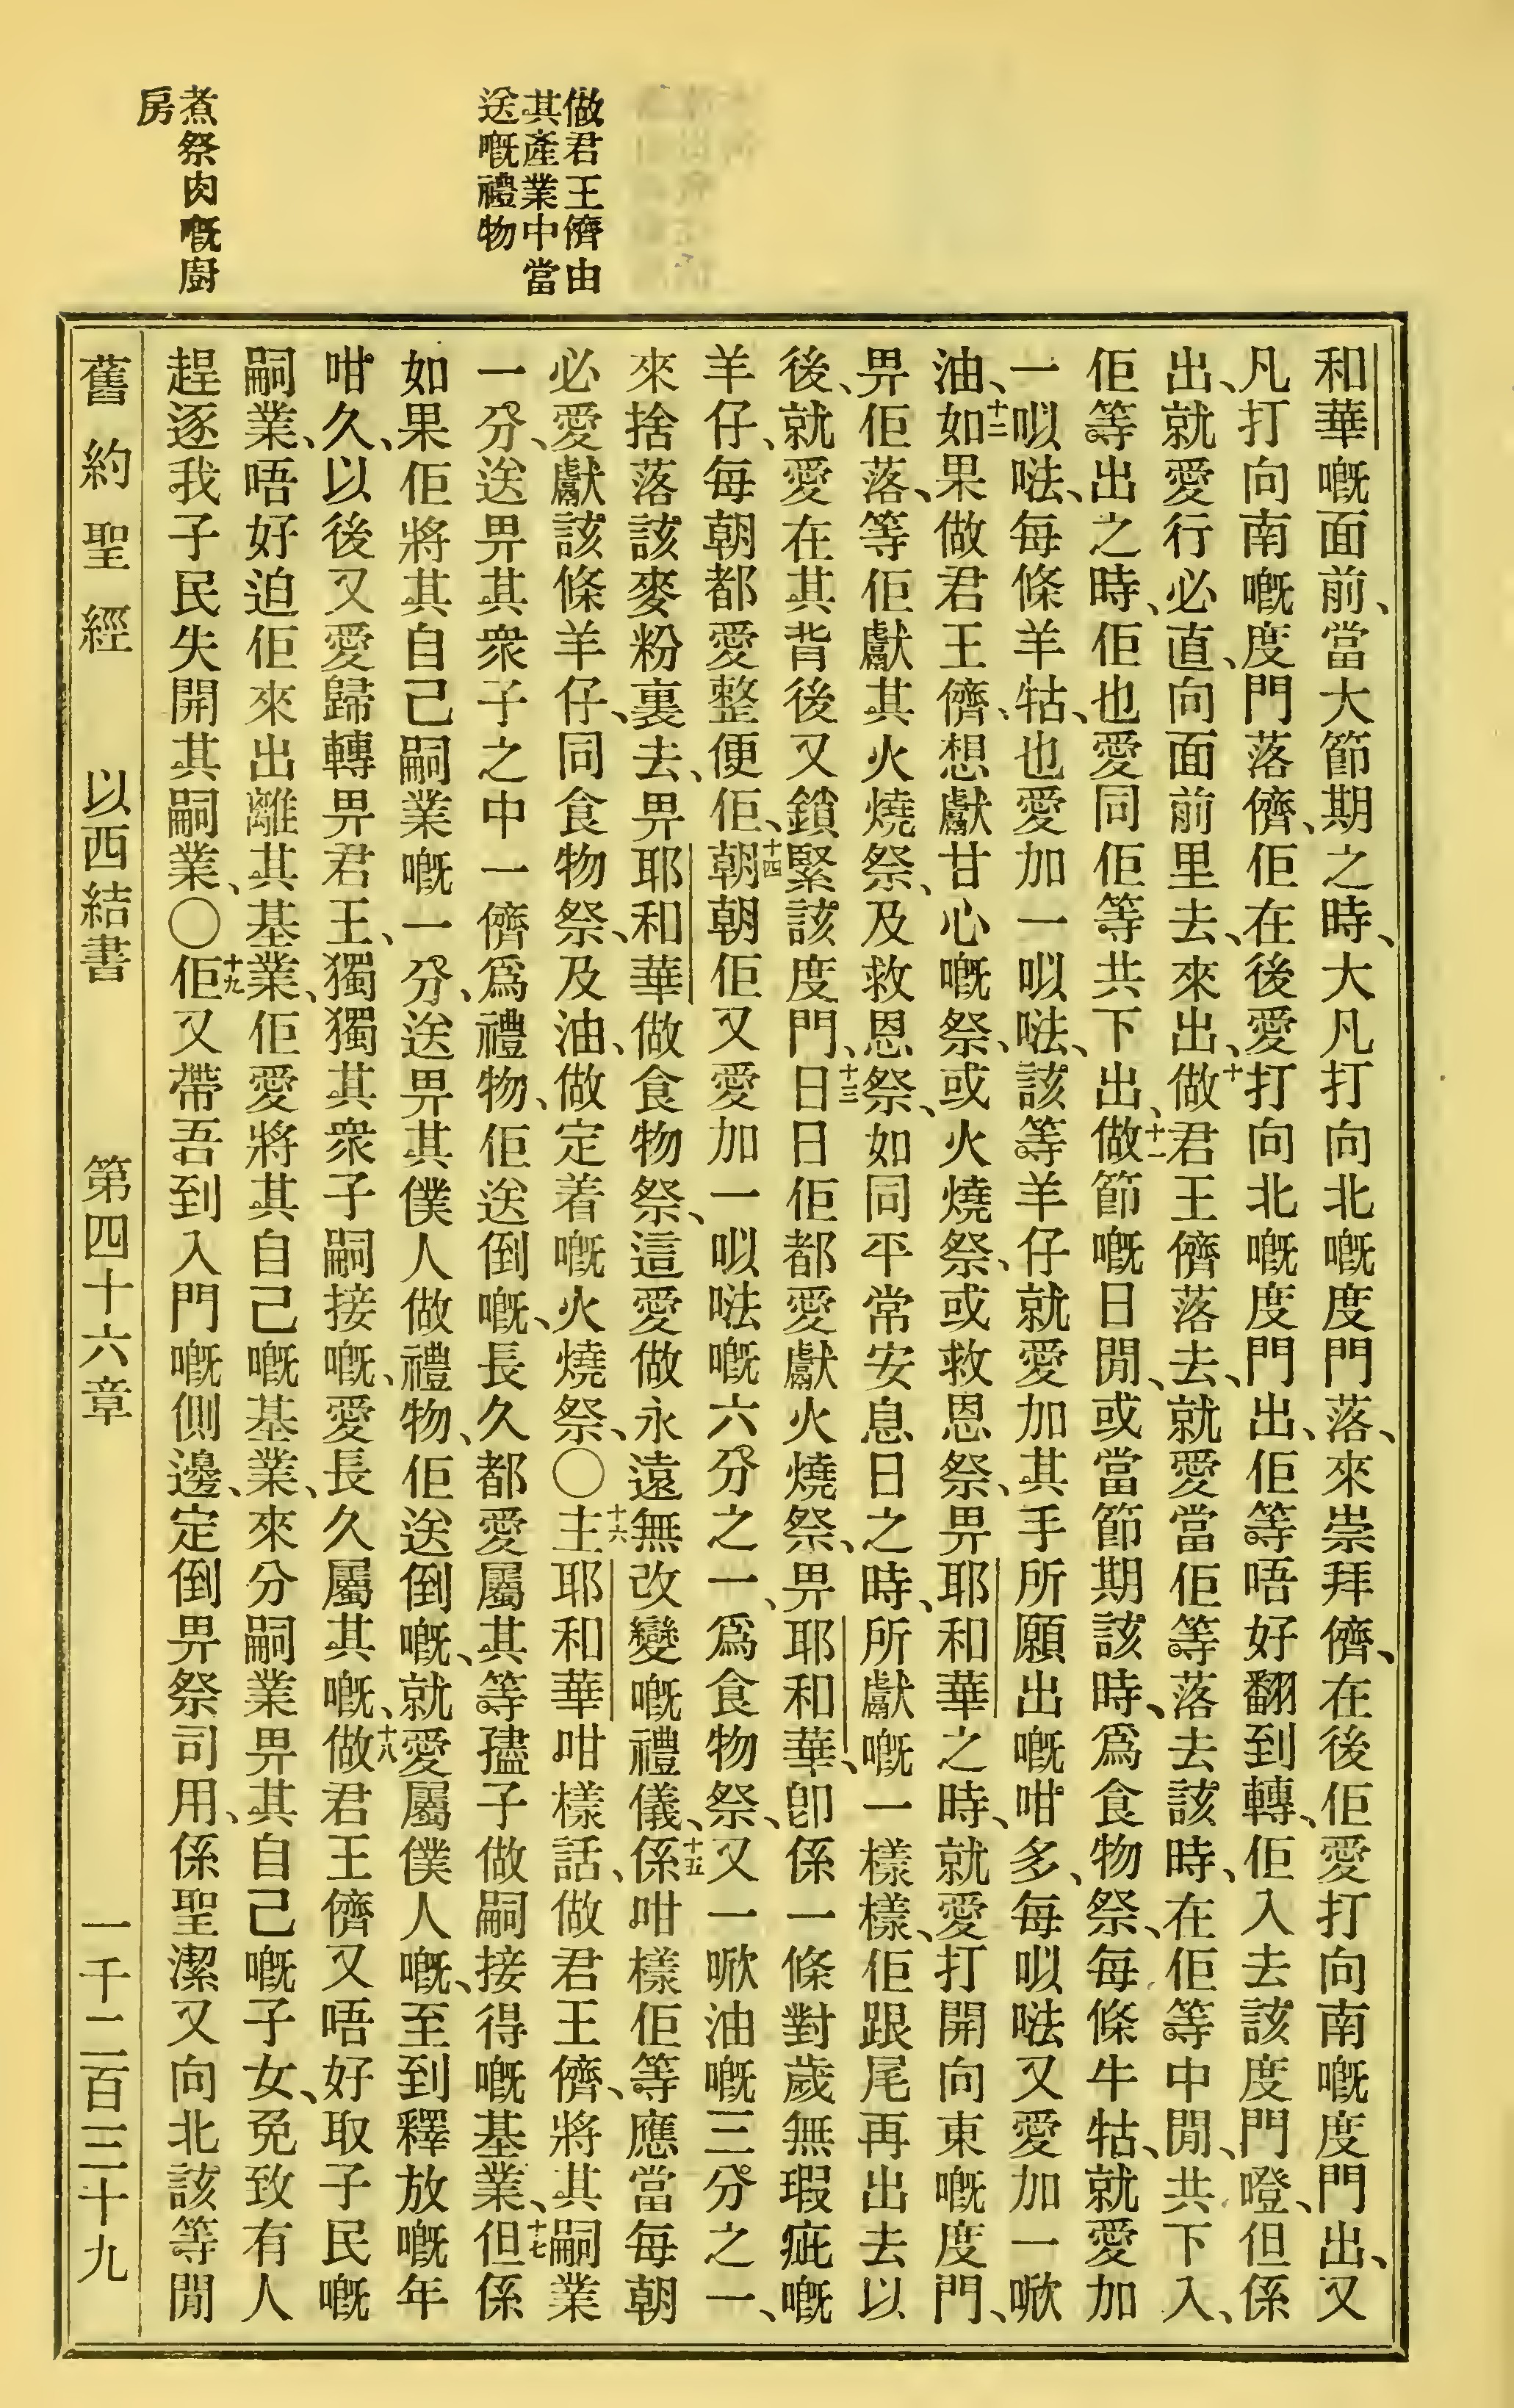 做君王儕由
其產業中當
送嘅禮物
煮祭肉嘅廚
房
和華嘅面前、當大節期之時、大凡打向北嘅度門落、來崇拜儕、在後佢愛打向南嘅度門出、又
凡打向南嘅度門落儕、佢在後愛打向北嘅度門出、佢等唔好翻到轉、佢入去該度門嶝、但係
出、就愛行必直、向面前里去、來出、十做君王儕落去、就愛當佢等落去該時、在佢等中間、共下入、
佢等出之時、佢也愛同佢等共下出、十一做節嘅日間、或當節期該時、爲食物祭、每條牛牯、就愛加
一㕽㗶、每條羊牯、也愛加一㕽㗶、該等羊仔就愛加其手所願出嘅咁多、每㕽㗶又愛加一㗀
油、十二如果做君王儕、想獻甘心嘅祭、或火燒祭、或救恩祭、畀耶和華之時、就愛打開向東嘅度門、
畀佢落、等佢獻其火燒祭、及救恩祭、如同平常安息日之時、所獻嘅一樣樣、佢跟尾再出去以
後、就愛在其背後又鎖緊該度門、十三日日佢都愛獻火燒祭、畀耶和華、卽係一條對歲無瑕疵嘅
羊仔、每朝都愛整便佢、十四朝朝佢又愛加一㕽㗶嘅六分之一、爲食物祭、又一㗀油嘅三分之一、
來捨落該麥粉裏去、畀耶和華做食物祭、這愛做永遠無改變嘅禮儀、十五係咁樣佢等應當每朝
必愛獻該條羊仔、同食物祭、及油、做定着嘅火燒祭、〇十六主耶和華咁樣話、做君王儕、將其嗣業
一分、送畀其衆子之中一儕爲禮物、佢送倒嘅、長久都愛屬其等孻子做嗣接得嘅基業、十七但係
如果佢將其自己嗣業嘅一分、送畀其僕人做禮物、佢送倒嘅、就愛屬僕人嘅、至到釋放嘅年
咁久、以後又愛歸轉畀君王、獨獨其衆子嗣接嘅、愛長久屬其嘅、十八做君王儕又唔好取子民嘅
嗣業、唔好迫佢來出離其基業、佢愛將其自己嘅基業、來分嗣業畀其自己嘅子女、免致有人
趕逐我子民失開其嗣業、〇十九佢又帶吾到入門嘅側邊、定倒畀祭司用、係聖潔又向北該等間
舊約聖經　以西結書　第四十六章　一千二百三十九